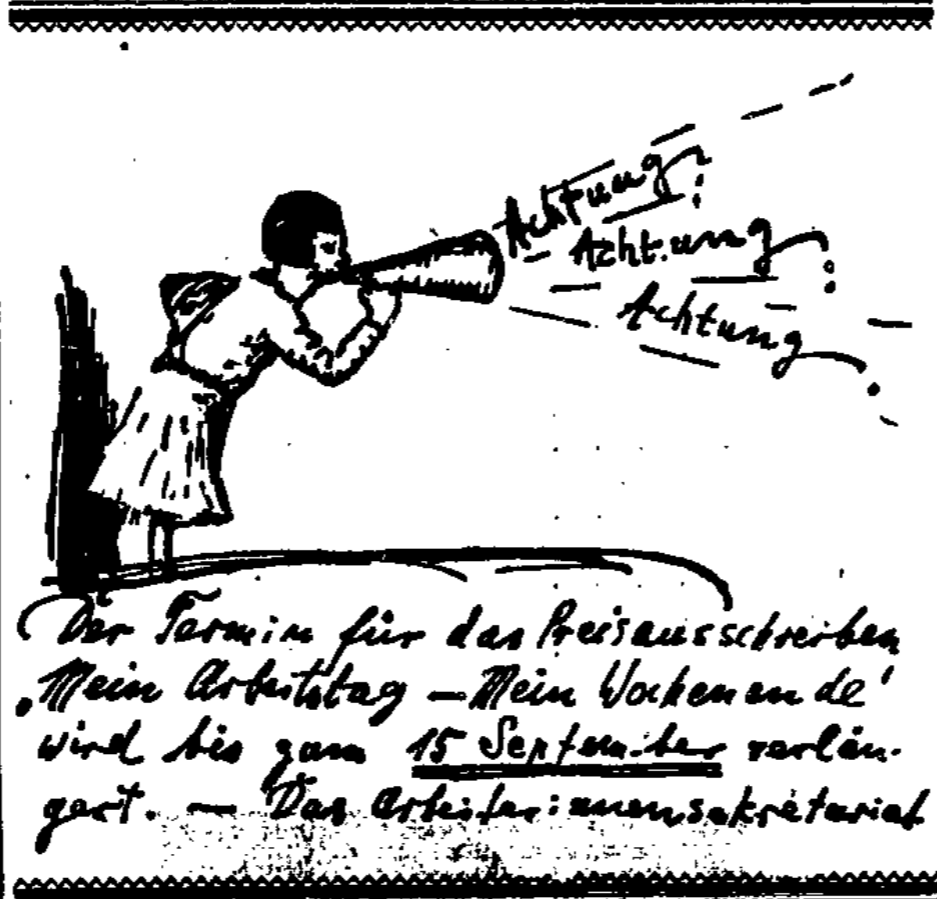 Achtung!
Achtung!
Achtung!
Der Termin für das Preisausschreiben
„Mein Arbeitstag — Mein Wochenende'
wird bis zum 15 September verlän-
gert. — Das Arbeiterinnensekretariat